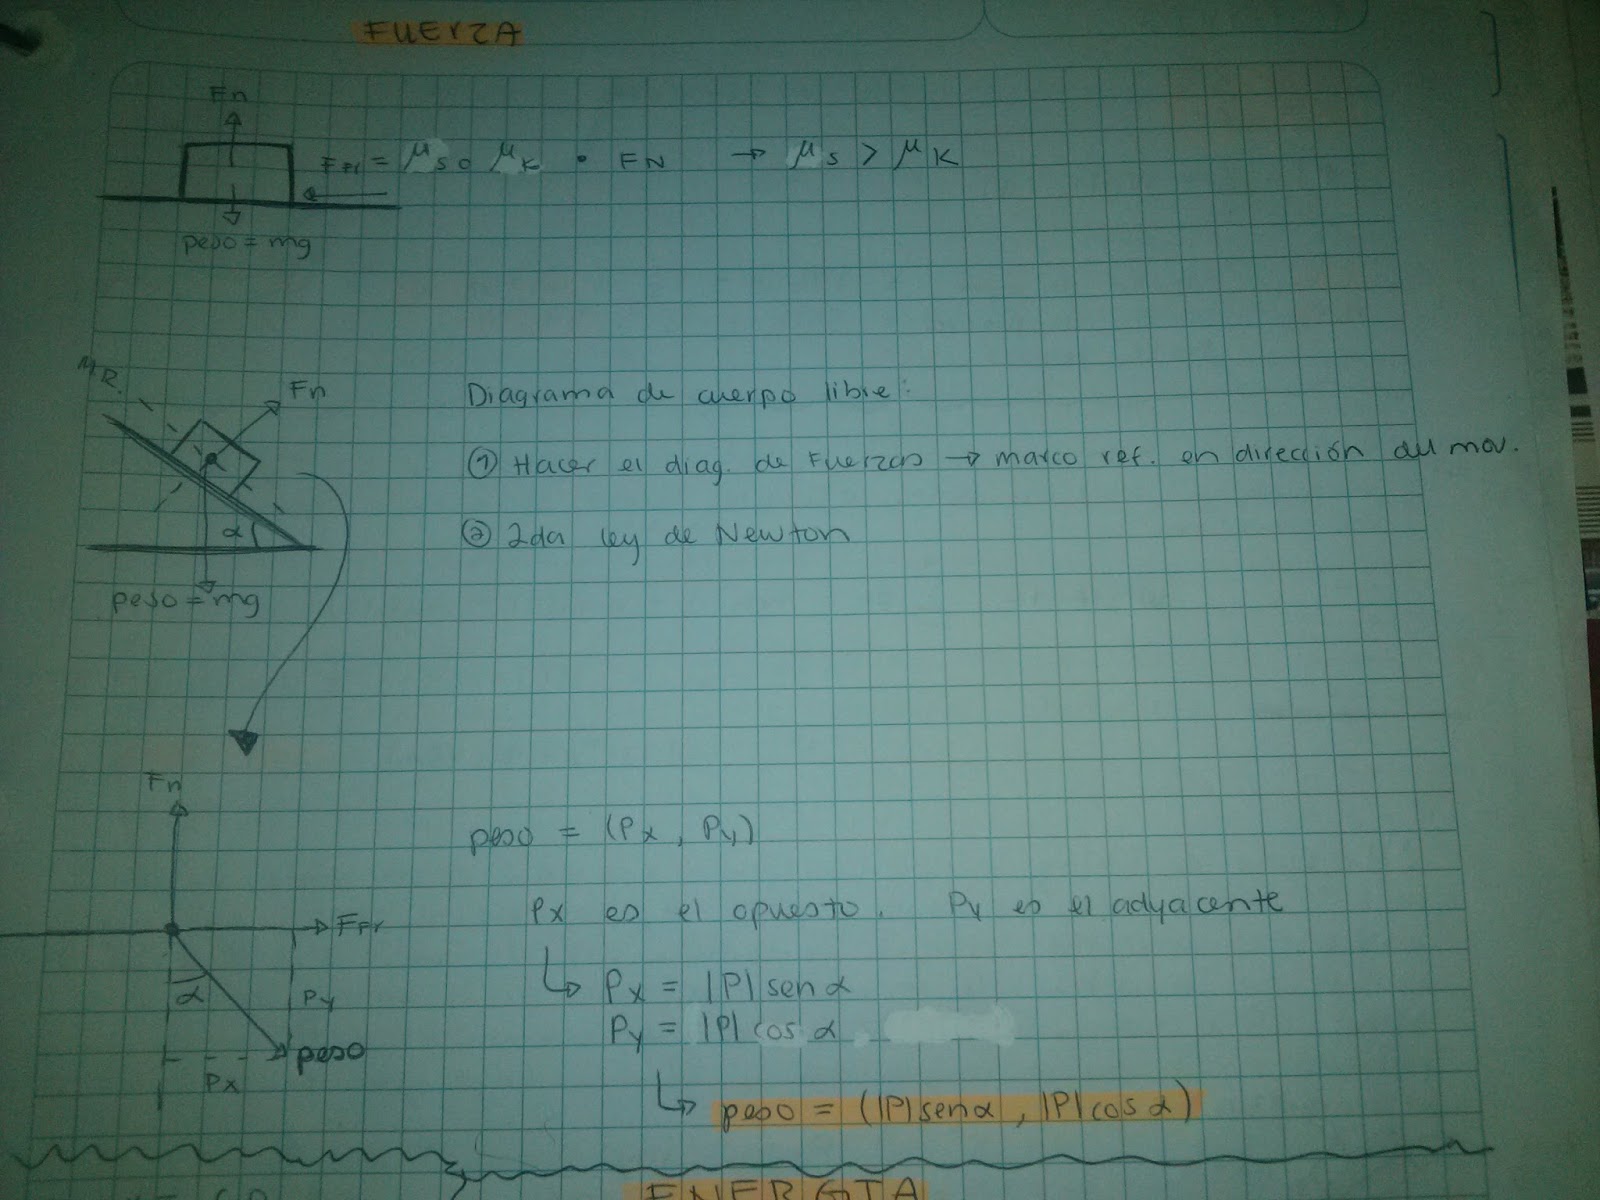 FUERZA
Fn
FFr = μs o μk • FN → μs > μk
peso = mg
M.R.
Fn
Diagrama de cuerpo libre:
① Hacer el diag. de Fuerzas → marco ref. en dirección del mov.
② 2da ley de Newton
α
peso = mg
Fn
peso = (Px, Py)
Px es el opuesto. Py es el adyacente
FFr
Px = |P| sen α
α
Py
Py = |P| cos α.
peso
Px
peso = (|P| sen α, |P| cos α)
ENERGIA